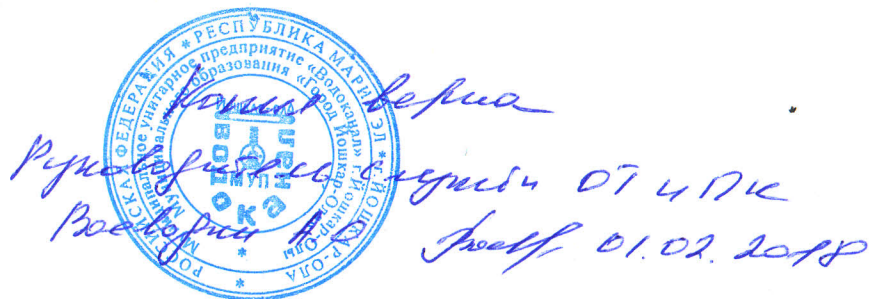 РОССИЙСКАЯ ФЕДЕРАЦИЯ * РЕСПУБЛИКА МАРИЙ ЭЛ * Г.ЙОШКАР-ОЛА *
Муниципальное унитарное предприятие «Водоканал» г.Йошкар-Олы
Муниципального образования «Город Йошкар-Ола»
ВОДОКАНАЛ
МУП
Копия верна
Руководитель службы ОТ и ПК
Воеводин А. 01.02.2018